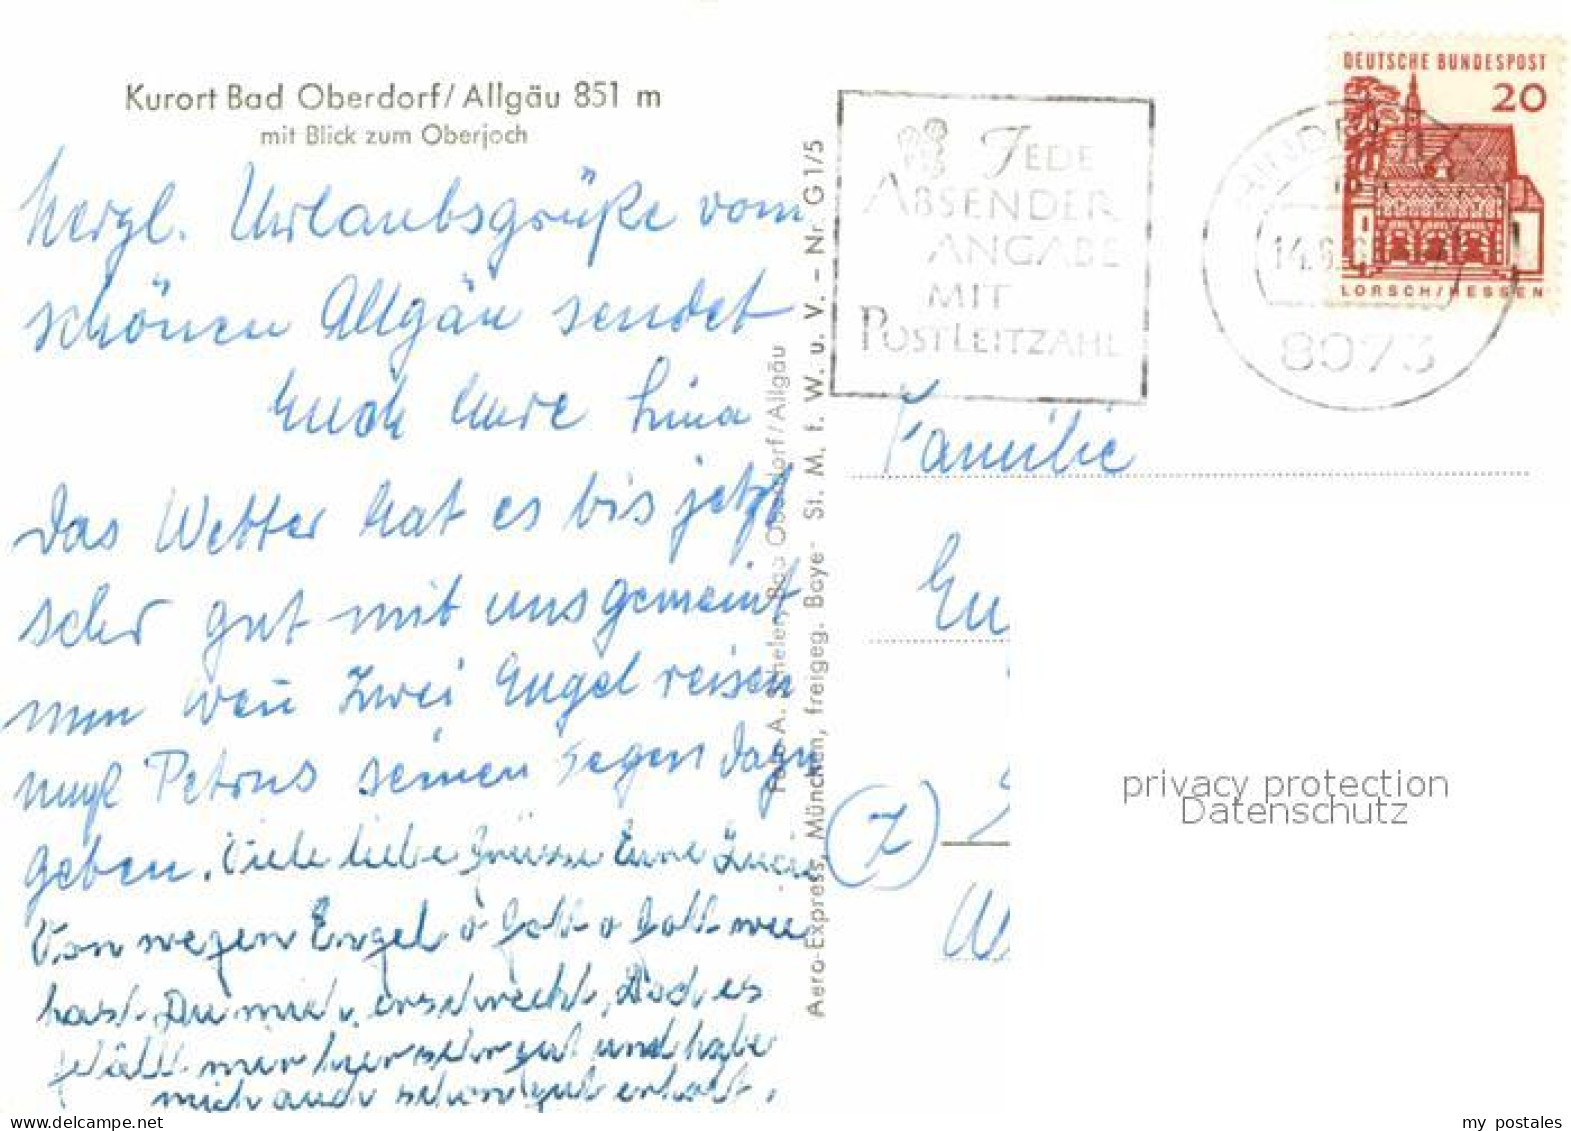 Kurort Bad Oberdorf/Allgäu 851 m
mit Blick zum Oberjoch
Herzl. Urlaubsgrüße vom
schönen Allgäu sendet
Euch Eure Lina
Das Wetter hat es bis jetzt
sehr gut mit uns gemeint
nun weñ zwei Engel reisen
muß Petrus seinen Segen dazu
geben. Viele liebe Grüsse Eure Luzie
Von wegen Engel o Gott o Gott wie
hast Du mich erschreckt, Doch es
gefällt mir hier sehr gut und habe
mich auch schon gut erholt.
Foto A. Scheler, Bad Oberdorf/Allgäu
Aero-Express, München, freigeg. Baye- St. M. f. W. u. V. – Nr. G 1/5
JEDE
ABSENDER
ANGABE
MIT
POSTLEITZAHL
8973
DEUTSCHE BUNDESPOST
20
LORSCH/HESSEN
Familie
Eu
privacy protection
Datenschutz
www.delcampe.net
my_postales